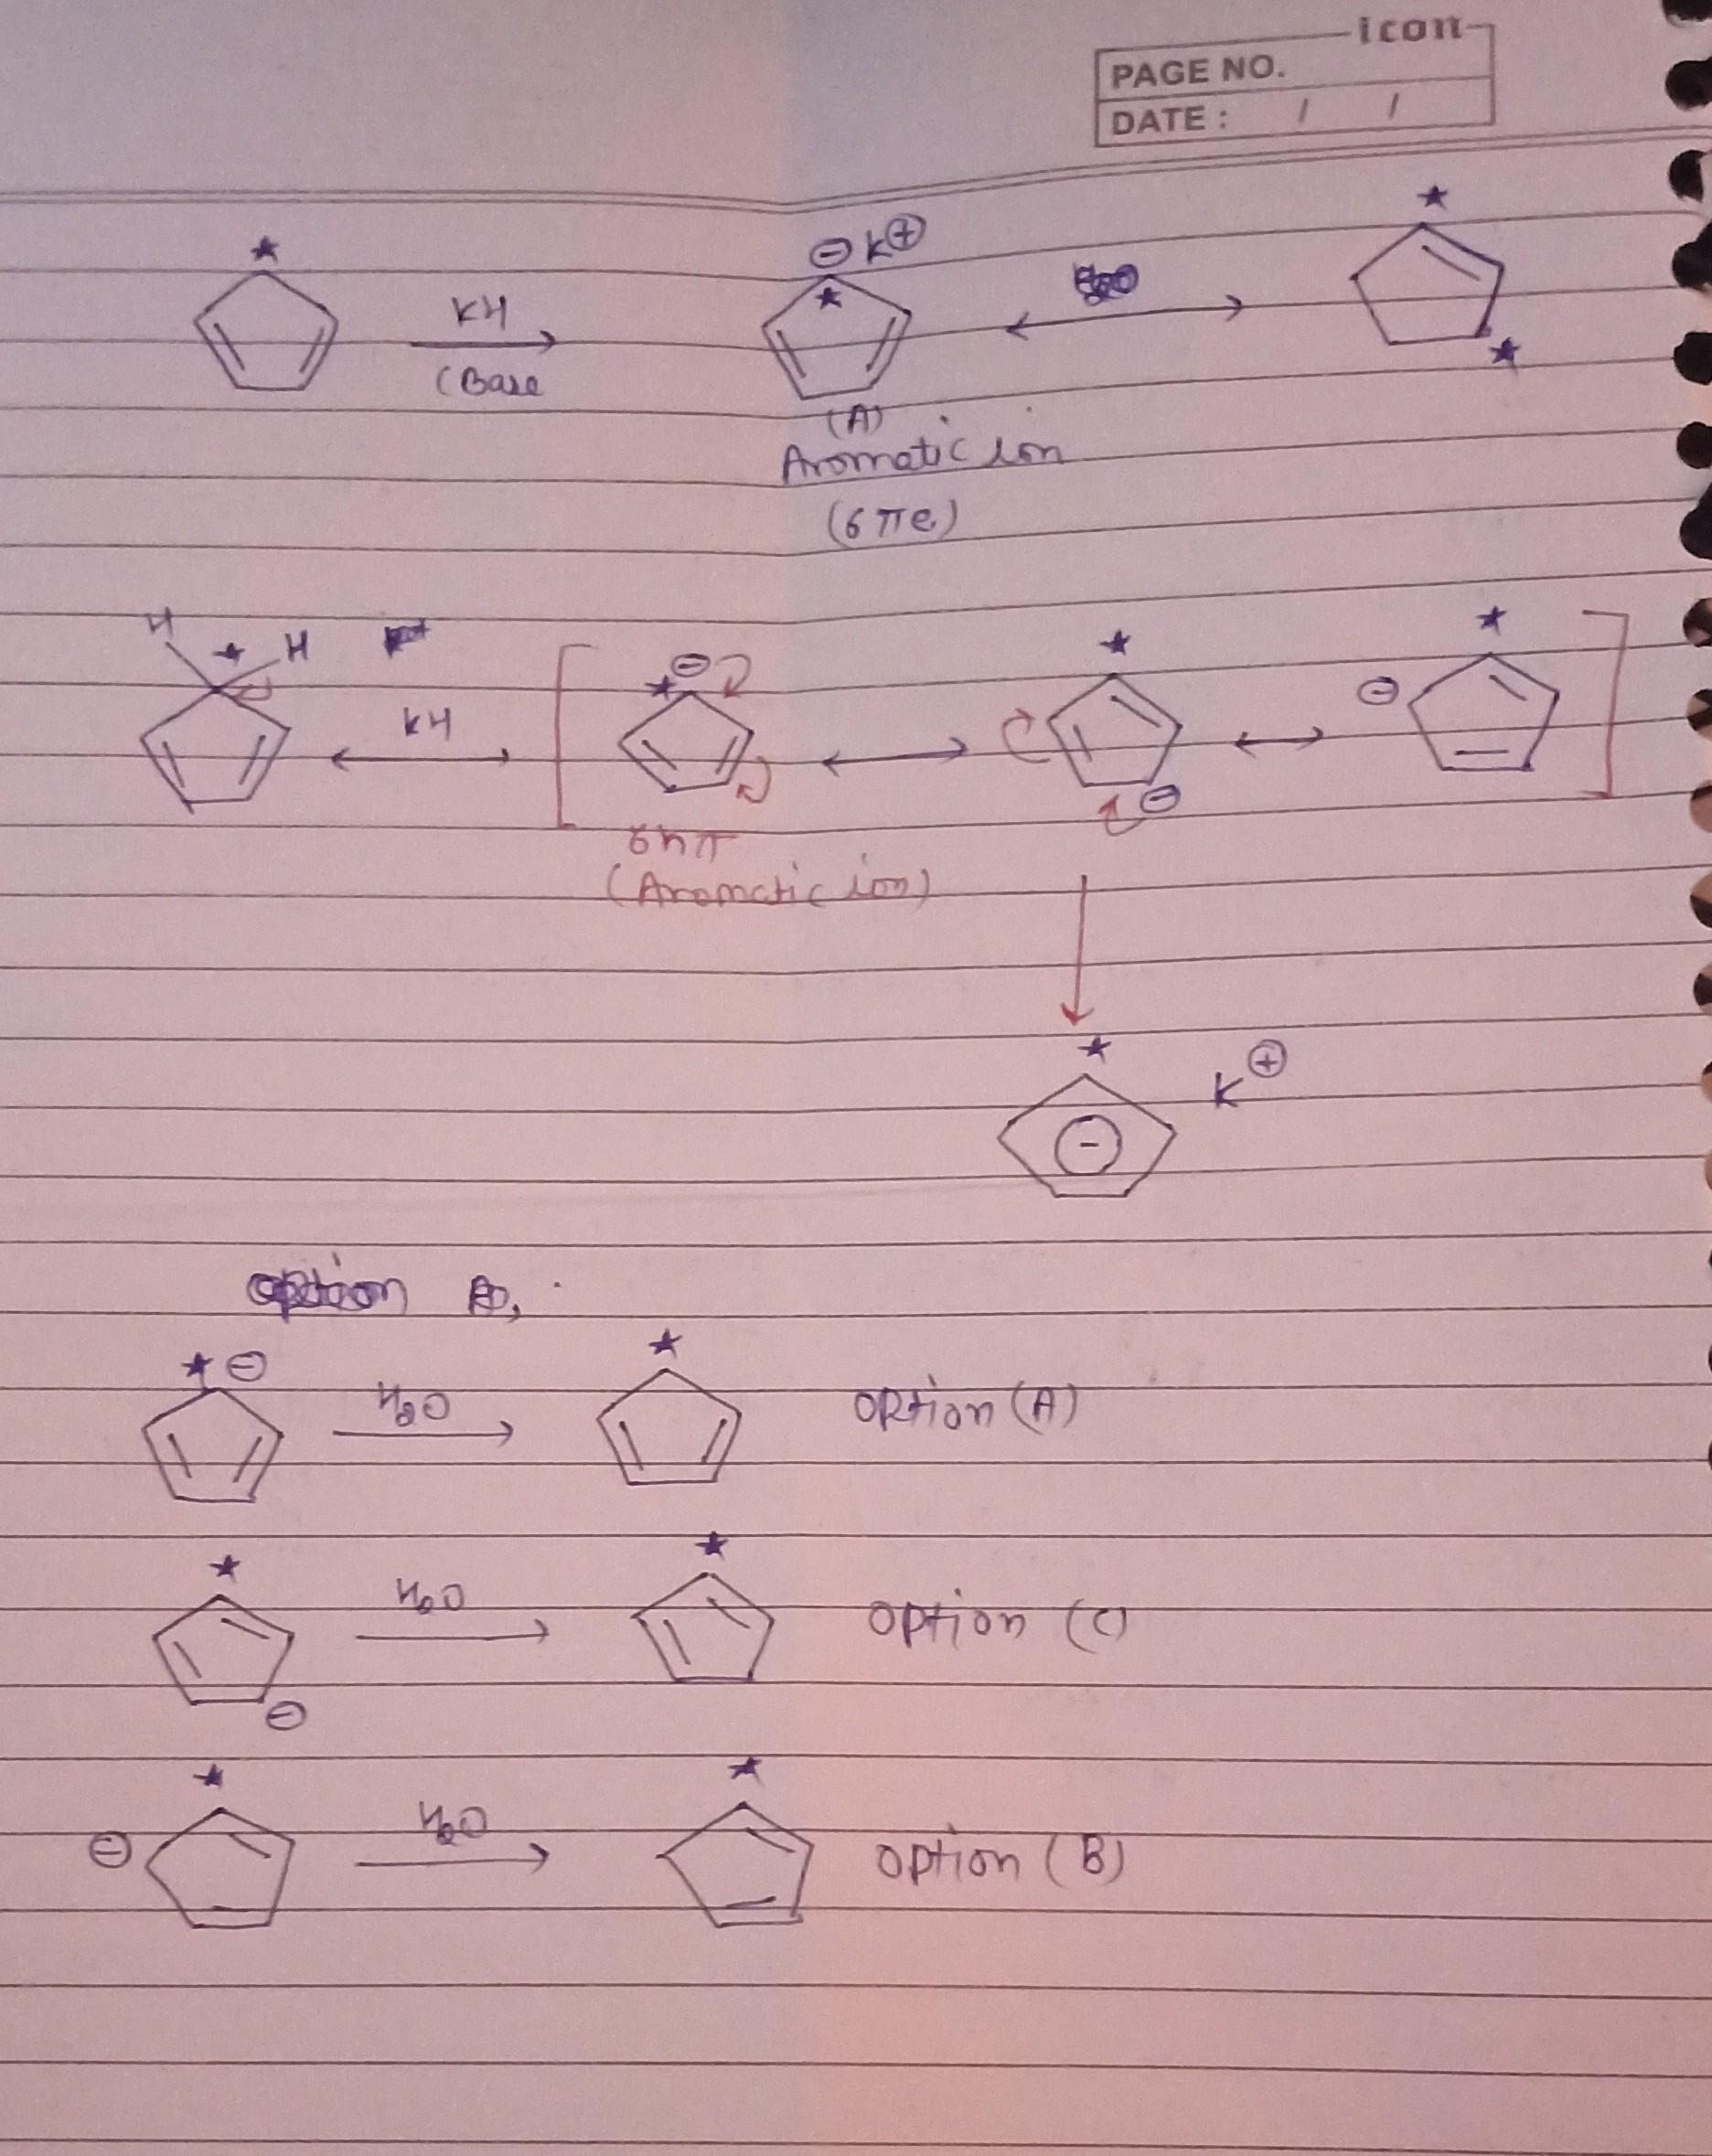 icon
PAGE NO.
DATE : / /
★ ⊖ K⊕ ★
KH ★
(Base ★
(A)
Aromatic ion
(6πe)
H ★ H
KH ★ ⊖ ★ ⊖ ★
⊖
6nπ
(Aromatic ion)
★ K⊕
⊖
option
★ ⊖ H2O ★ OPtion (A)
★ H2O ★ option (C)
⊖
★ ★
⊖ H2O option (B)